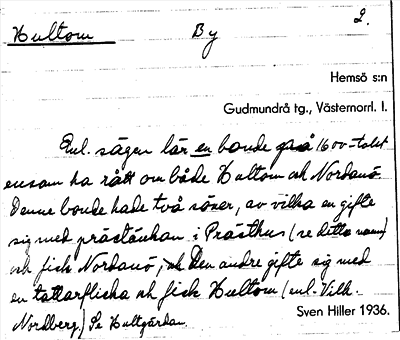 Hultom By 2.
Hemsö s:n
Gudmundrå tg., Västernorrl. l.
Enl. sägen lär en bonde på 1600-talet
ensam ha rått om både Hultom och Nordanö.
Denne bonde hade två söner, av vilka en gifte
sig med prästänkan i Prästhus (se detta namn)
och fick Nordanö, och den andre gifte sig med
en tattarflicka och fick Hultom (enl. Vilh.
Nordberg) Se Hultgårdan.
Sven Hiller 1936.